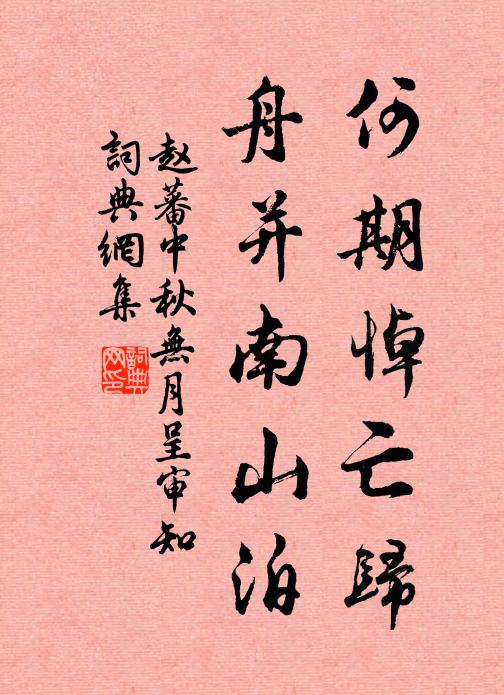 何期悼亡歸
舟并南山泊
赵蕃中秋無月呈审知
詞典網集
詞典
网印